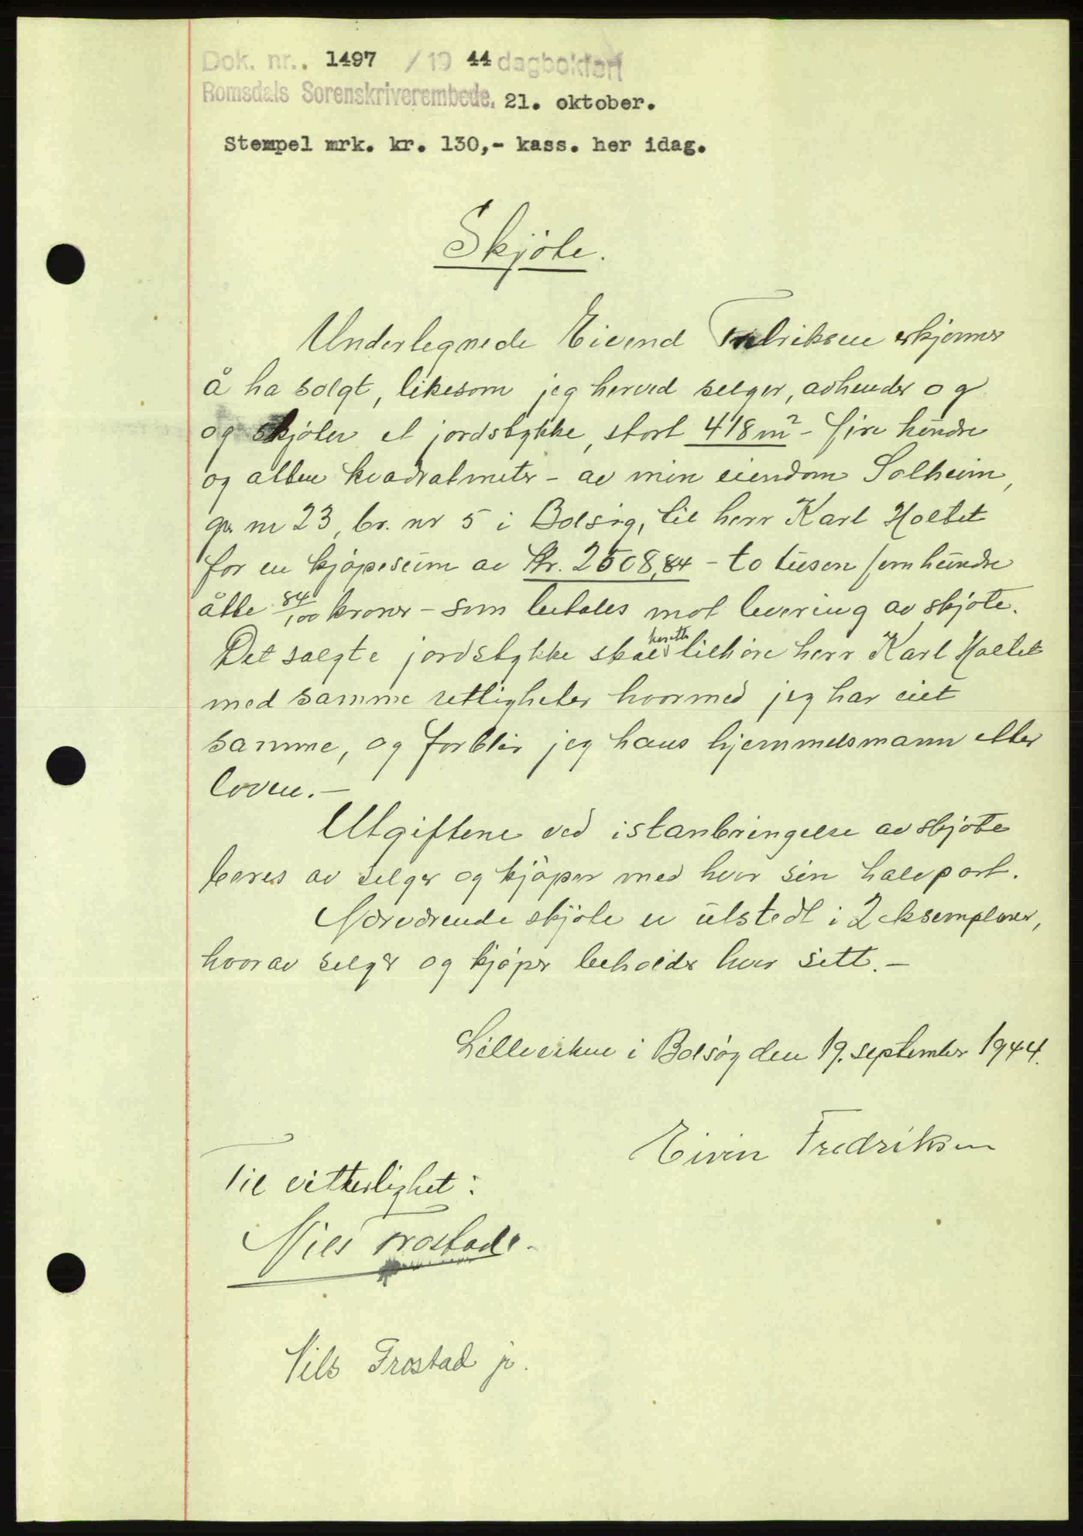 Dok. nr. 1497 / 19 44 dagbokført
Romsdals Sorenskriverembede, 21. oktober.
Stempel mrk. kr. 130,- kass. her idag.
Skjöte.
Underlegnede Eivend Fredriksen erkjenner
å ha solgt, likesom jeg herved selger, avhender og
og skjöter et jordstykke, stort 418 m² - fire hundre
og atten kvadratmeter - av min eiendom Solheim,
gr. nr 23, br. nr 5 i Bolsøy, til herr Karl Holtet
for en kjøpesum av kr. 2508,84 - to tusen fem hundre
åtte 84/100 kroner - som betales mot levering av skjøte.
Det solgte jordstykke skal heretter tilhøre herr Karl Holtet
med samme rettigheter hvormed jeg har eiet
samme, og forblir jeg hans hjemmelsmann etter
loven. -
Utgiftene ved istanbringelse av skjøte
beres av selger og kjøper med hver sin halvpart.
Nærværende skjöte er utstedt i 2 eksemplarer,
hvorav selger og kjøper beholder hver sitt. -
i Bolsøy den 19. september 1944.
Eivin Fredriksen
Til vitterlighet:
Nils Frostad.
Nils Frostad jr.